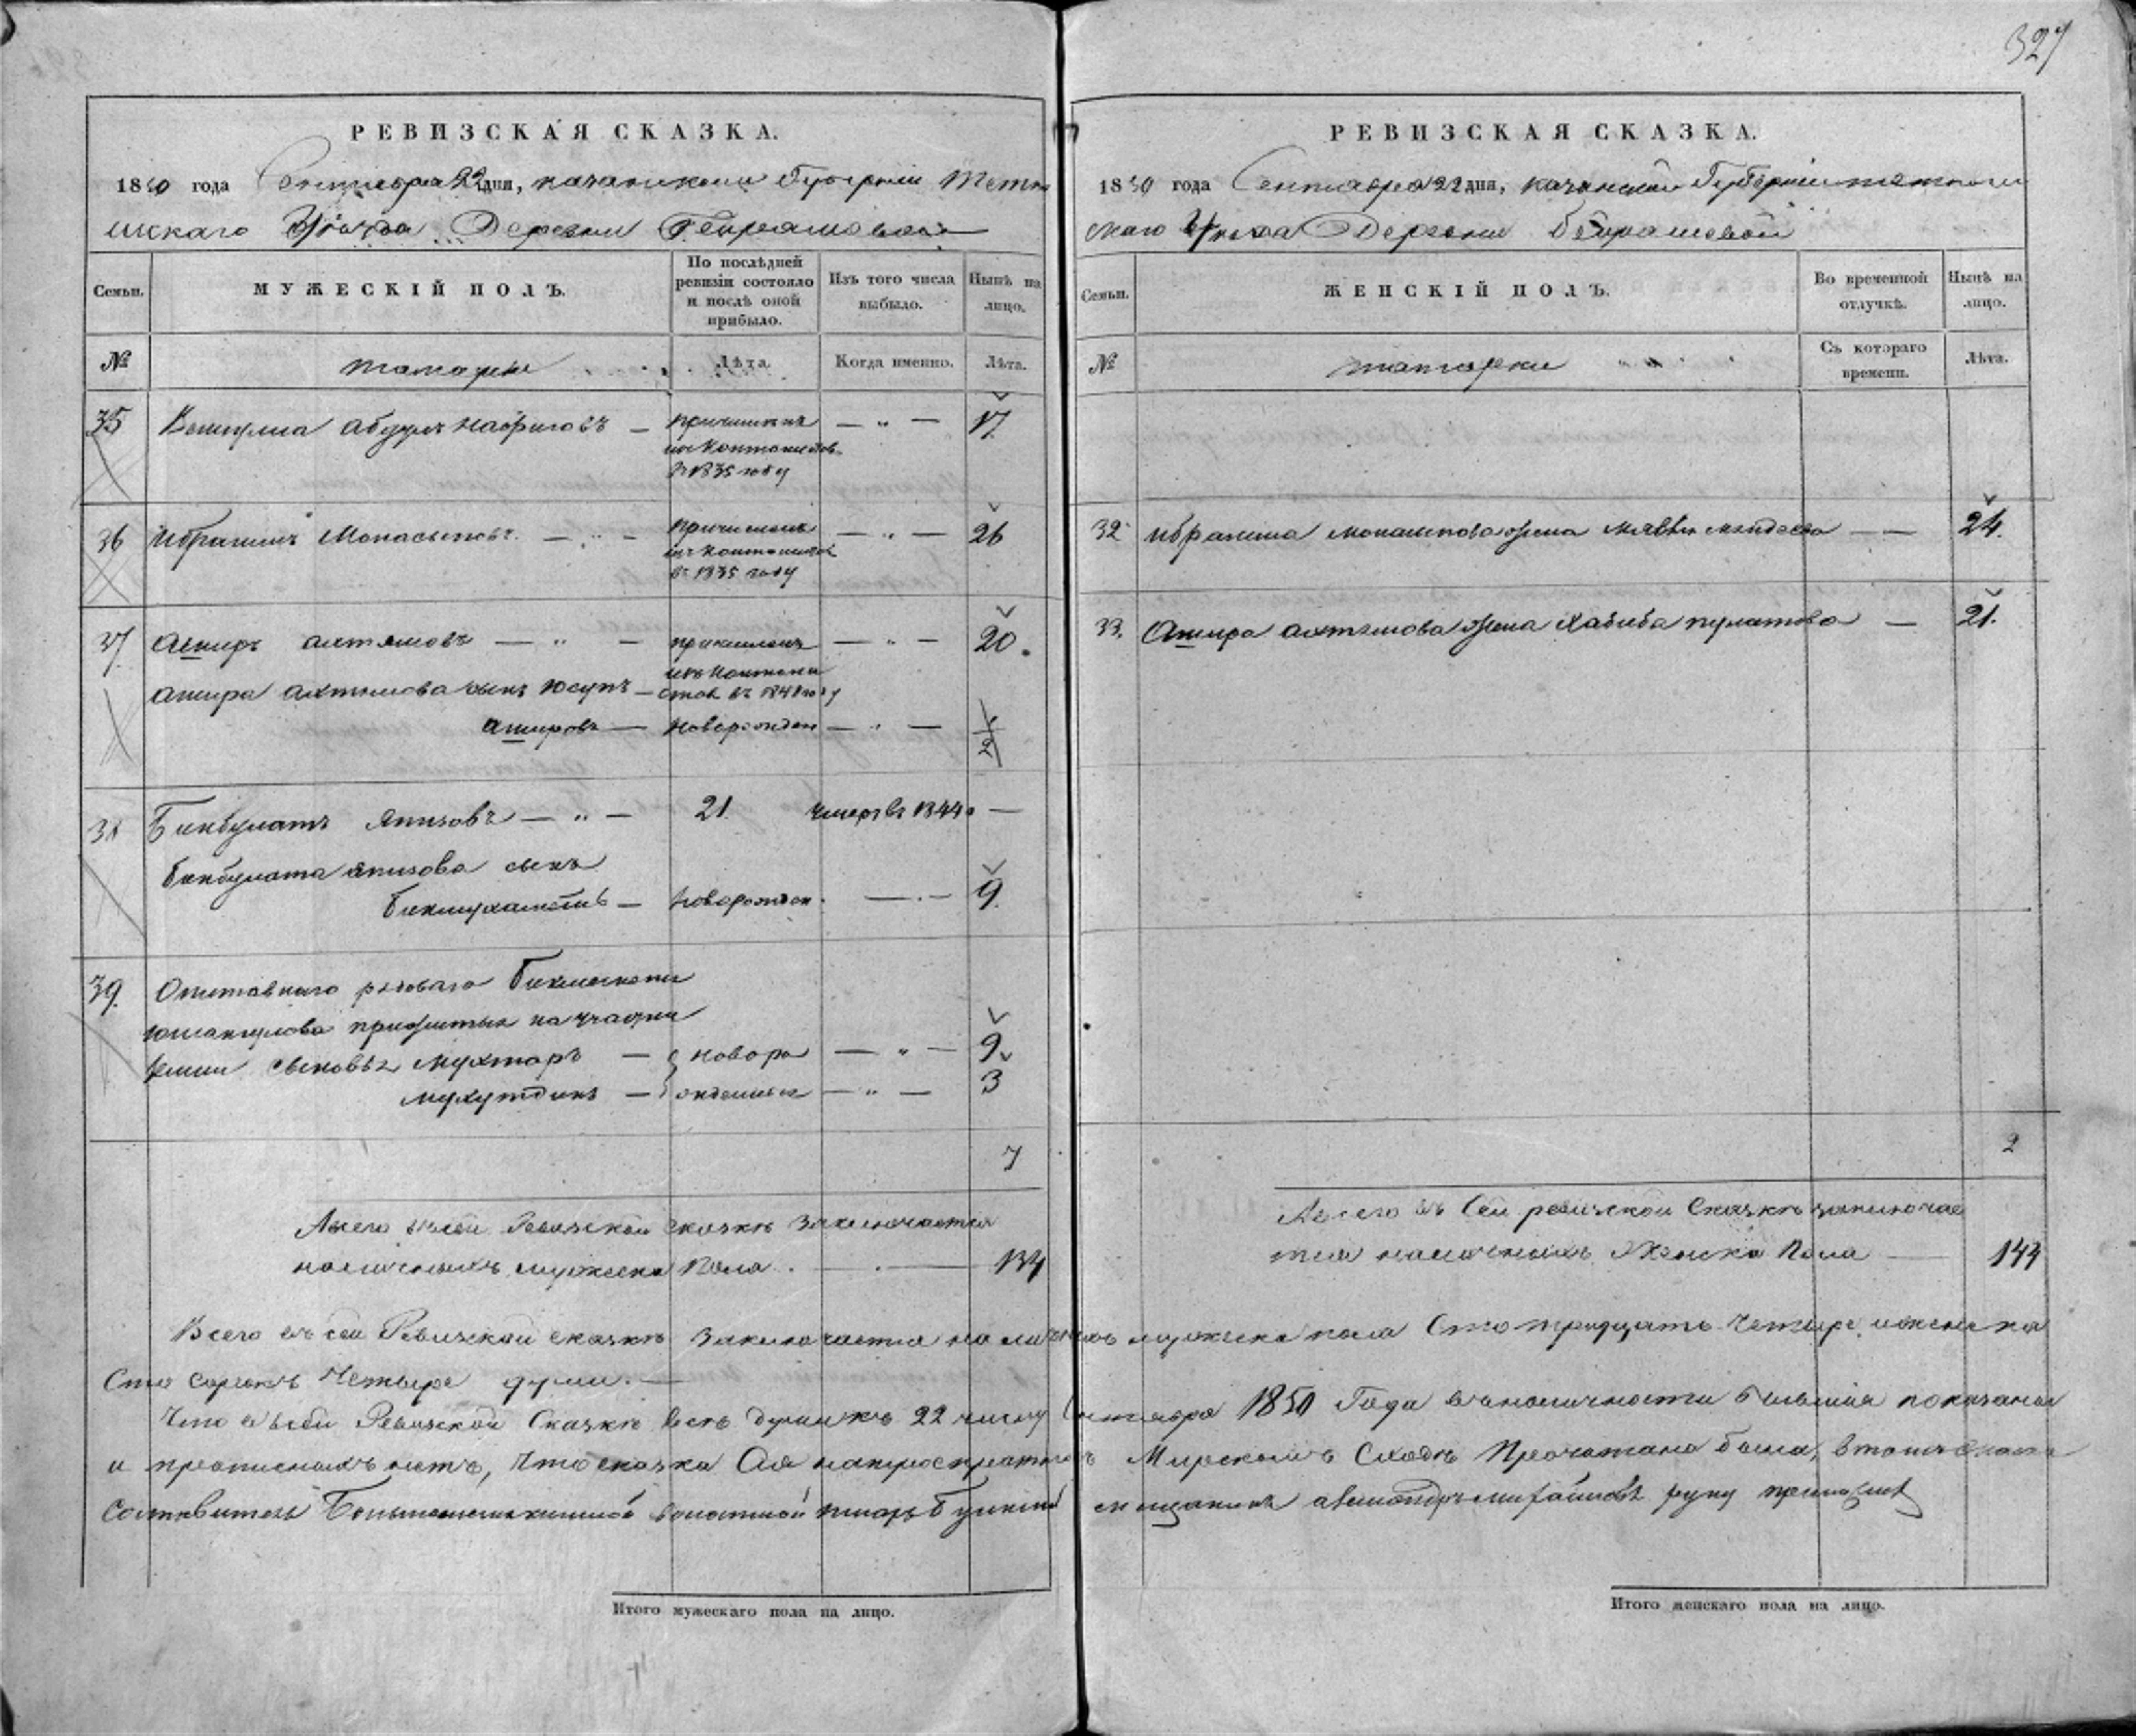 327
РЕВИЗСКАЯ СКАЗКА.
1850 года Сентября 22 дня, казанской Губернии Тетю
шскаго Уѣзда Деревни Беирашевой
Семьи.
МУЖЕСКІЙ ПОЛЪ.
По послѣдней ревизіи состояло и послѣ оной прибыло.
Изъ того числа выбыло.
Нынѣ на лицо.
№
татаръ
Лѣта.
Когда именно.
Лѣта.
35 Абдулъ Нафиговъ — причисленъ — „ — 17.
изъ Кантонистовъ
въ 1835 году
36 Ибрагимъ Монасыповъ — „ — причисленъ — „ — 26
изъ кантонистов
въ 1835 году
37. Аширъ Ахтямовъ — „ — причисленъ — „ — 20.
изъ кантони
Ашира Ахтямова сынъ Юсупъ — стов въ 1841 году
Ашировъ — Новорожден — „ —
38 Бикбулатъ Япизовъ — „ — 21. Умеръ въ 1844 —
Бикбулата япизова сынъ
Бикмухаметь — Новорожден. — 9.
39. Отставнаго рядоваго
прижитыя
сыновья Мухтаръ — новоро — „ — 9
Мухутдинъ — жденные — „ — 3
7
Всего въ сей Ревизской сказкѣ заключается
наличныхъ мужеска Пола — 134
РЕВИЗСКАЯ СКАЗКА.
1850 года Сентября 22 дня, казанской Губерніи тетюш
скаго Уѣзда Деревни Беирашевой
Семьи.
ЖЕНСКІЙ ПОЛЪ.
Во временной отлучкѣ.
Нынѣ на лицо.
№
татарки
Съ котораго времени.
Лѣта.
32 Ибрагима Монасыпова жена — — 24.
33. Ашира Ахтямова жена Хабиба пулатова — 21.
2
Всего въ Сей ревизской Сказкѣ заключае
тся наличныхъ Женска Пола — 144
Всего въ сей Ревизской сказкѣ заключается наличныхъ мужеска пола Сто тридцать Четыре, и женска
Сто сорокъ Четыре души. —
Что въ сей Ревизской Сказкѣ всѣ души къ 22 числу Сентября 1850 Года въ наличности бывшія показаны
и прописныхъ нетъ, Что сказка Сія на Мирскомъ Сходѣ Прочитана была, в томъ
Составитель волостной писарь мещанинъ руку приложилъ
Итого мужескаго пола на лицо.
Итого женскаго пола на лицо.